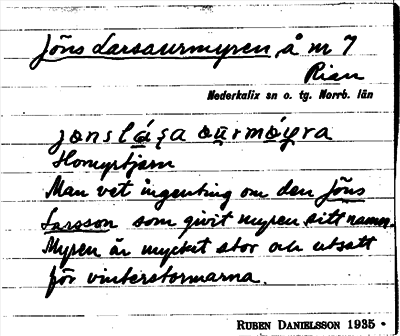 Jöns Larsaurmyren, å nr 7
Rian
Nederkalix sn o. tg. Norrb. län
Man vet ingenting om den Jöns
Larsson som givit myren sitt namn.
Myren är mycket stor och utsatt
för vinterstormarna.
RUBEN DANIELSSON 1935.